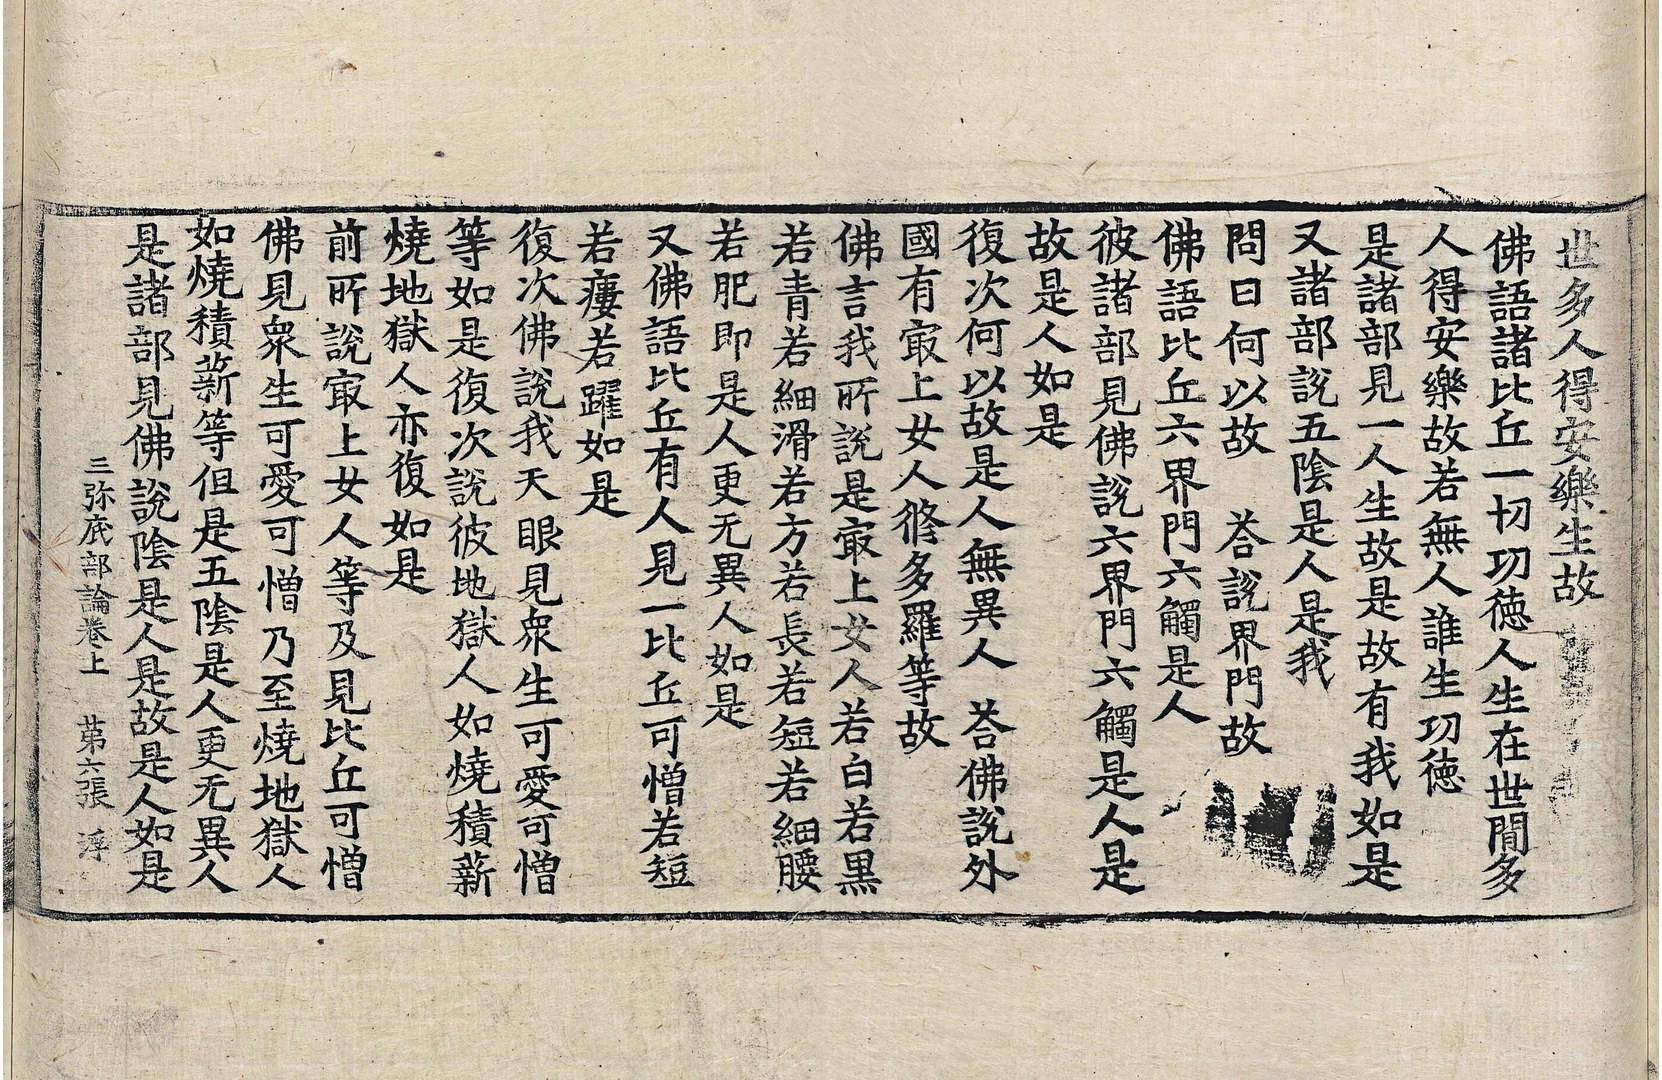 世多人得安樂生故
佛語諸比丘一切功德人生在世間多
人得安樂故若無人誰生功德
是諸部見一人生故是故有我如是
又諸部說五陰是人是我
問曰何以故　荅說界門故
佛語比丘六界門六觸是人
彼諸部見佛說六界門六觸是人是
故是人如是
復次何以故是人無異人　荅佛說外
國有㝡上女人修多羅等故
佛言我所說是㝡上女人若白若黒
若青若細滑若方若長若短若細腰
若肥即是人更无異人如是
又佛語比丘有人見一比丘可憎若短
若瘻若躍如是
復次佛說我天眼見衆生可愛可憎
等如是復次說彼地獄人如燒積薪
燒地獄人亦復如是
前所說㝡上女人等及見比丘可憎
佛見衆生可愛可憎乃至燒地獄人
如燒積薪等但是五陰是人更无異人
是諸部見佛說陰是人是故是人如是
三弥底部論卷上　第六張　浮